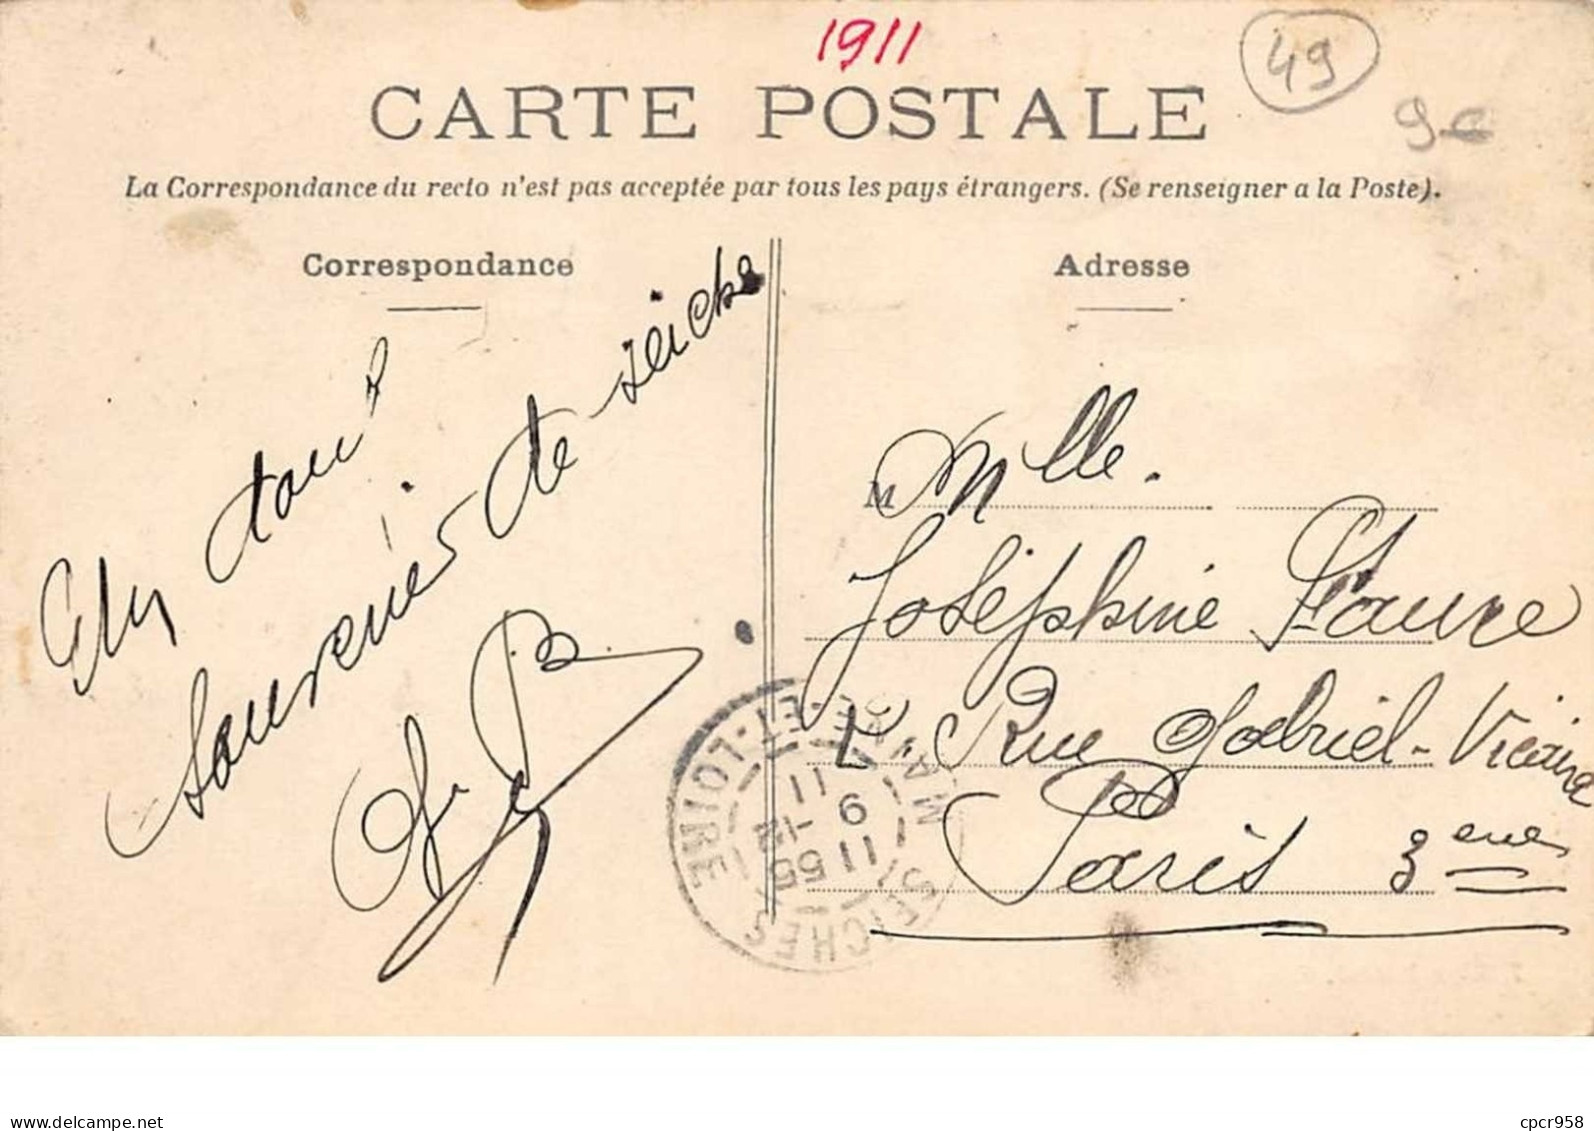 1911
49
9 €
CARTE POSTALE
La Correspondance du recto n'est pas acceptée par tous les pays étrangers. (Se renseigner a la Poste).
Correspondance
Souvenir de seiche
Adresse
M Mlle.
Joséphine Faure
Rue Gabriel-Vicaire
Paris 3eme
SEICHES
MAINE-ET-LOIRE
11 55
9 -12
11
delcampe.net
cpcr958